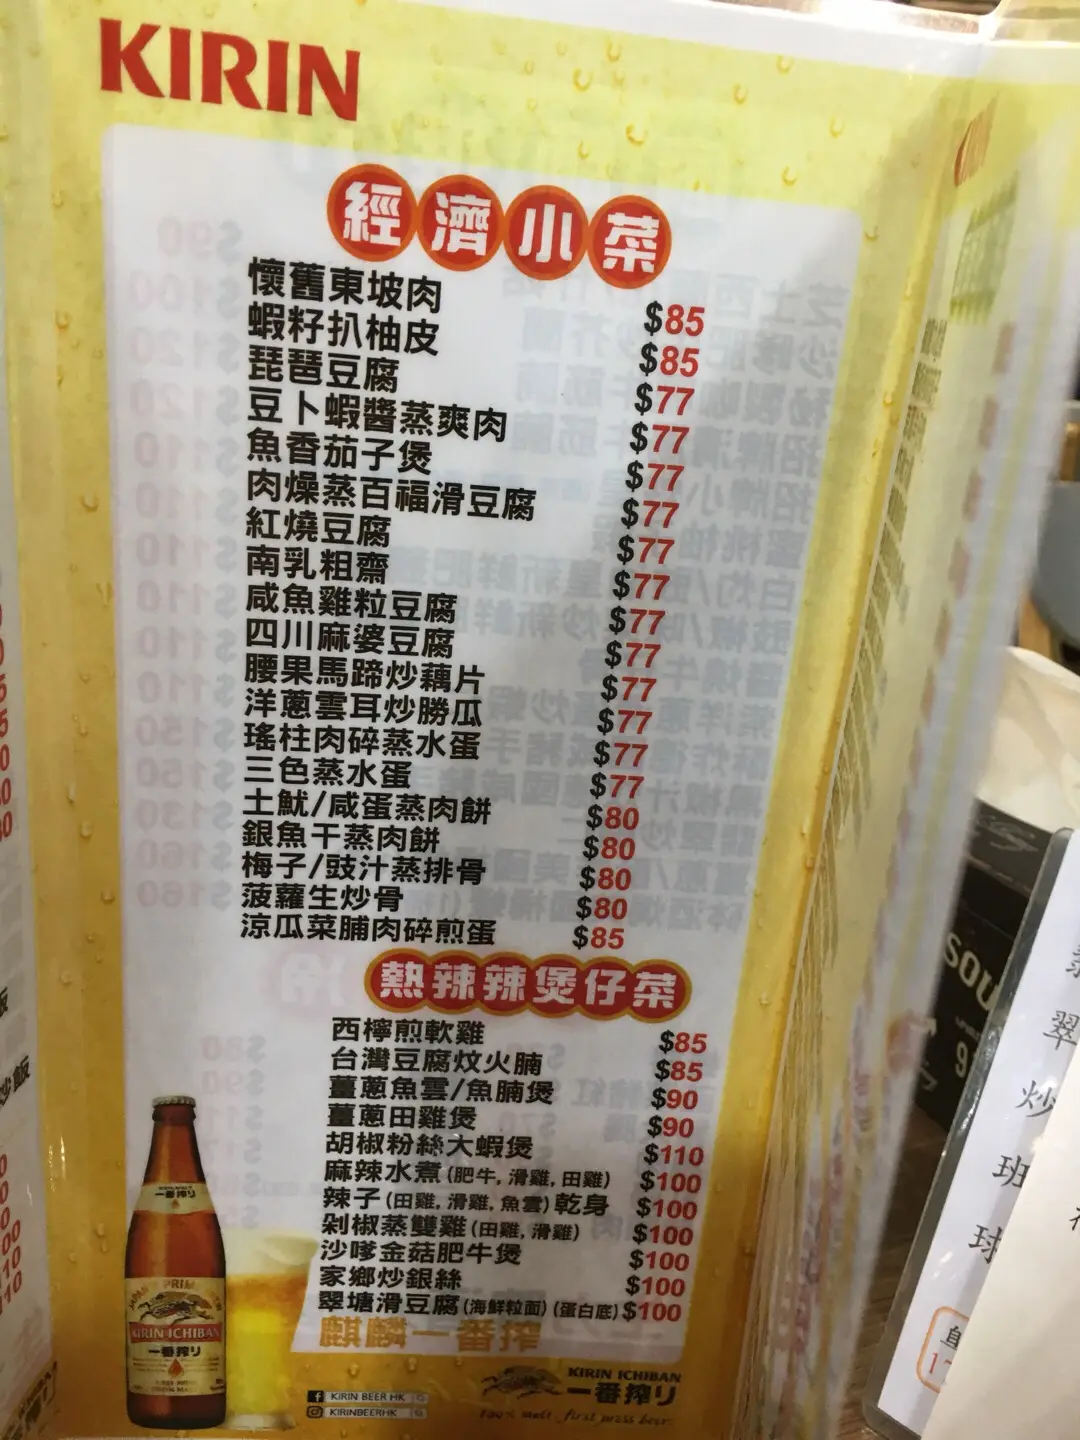 KIRIN
經濟小菜
懷舊東坡肉 $85
蝦籽扒柚皮 $85
琵琶豆腐 $77
豆卜蝦醬蒸爽肉 $77
魚香茄子煲 $77
肉燥蒸百福滑豆腐 $77
紅燒豆腐 $77
南乳粗齋 $77
咸魚雞粒豆腐 $77
四川麻婆豆腐 $77
腰果馬蹄炒藕片 $77
洋蔥雲耳炒勝瓜 $77
瑤柱肉碎蒸水蛋 $77
三色蒸水蛋 $77
土魷/咸蛋蒸肉餅 $80
銀魚干蒸肉餅 $80
梅子/豉汁蒸排骨 $80
菠蘿生炒骨 $80
涼瓜菜脯肉碎煎蛋 $85
熱辣辣煲仔菜
西檸煎軟雞 $85
台灣豆腐炆火腩 $85
薑蔥魚雲/魚腩煲 $90
薑蔥田雞煲 $90
胡椒粉絲大蝦煲 $110
麻辣水煮(肥牛, 滑雞, 田雞) $100
辣子(田雞, 滑雞, 魚雲)乾身 $100
剁椒蒸雙雞(田雞, 滑雞) $100
沙嗲金菇肥牛煲 $100
家鄉炒銀絲 $100
翠塘滑豆腐(海鮮粒面)(蛋白底) $100
麒麟一番搾
KIRIN ICHIBAN
一番搾り
KIRIN BEER HK
KIRINBEERHK
KIRIN ICHIBAN
一番搾り
100% malt . first press beer.